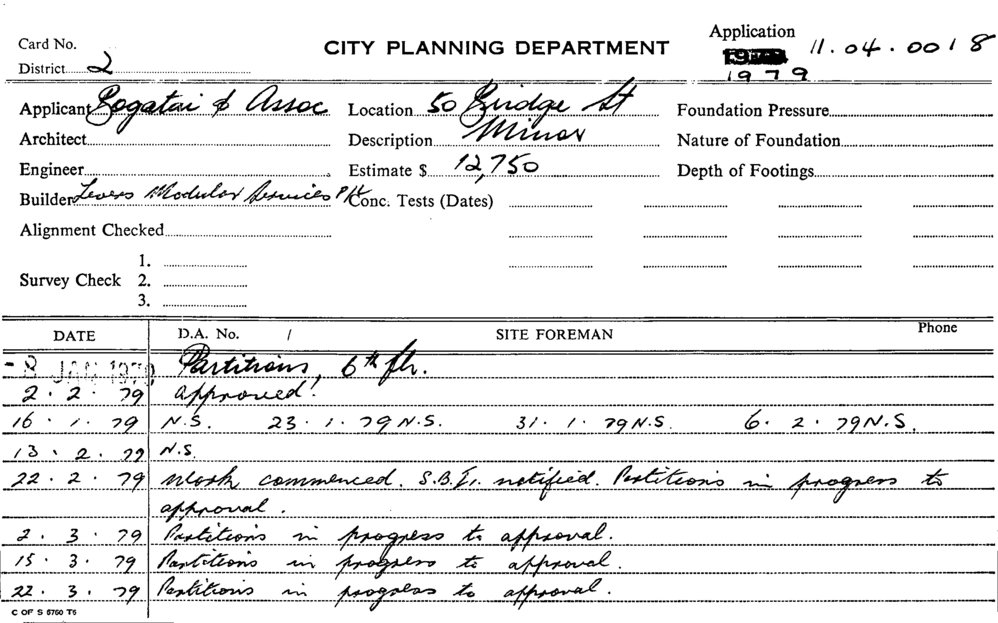 CITY PLANNING DEPARTMENT
Card No.
District 2
Application 11.04.0018
1979
Applicant Rogatai & Assoc
Location 50 Bridge St
Foundation Pressure
Architect
Description Minor
Nature of Foundation
Engineer
Estimate $ 12,750
Depth of Footings
Builder Levers Modular Services P/L
Conc. Tests (Dates)
Alignment Checked
Survey Check 1.
2.
3.
DATE D.A. No. / SITE FOREMAN Phone
-8 JAN 1979 Partitions, 6th flr.
2.2.79 approved!
16.1.79 N.S. 23.1.79 N.S. 31.1.79 N.S. 6.2.79 N.S.
13.2.79 N.S.
22.2.79 Work commenced. S.B.I. notified. Partitions in progress to
approval.
2.3.79 Partitions in progress to approval.
15.3.79 Partitions in progress to approval.
22.3.79 Partitions in progress to approval.
C OF S 5750 T5